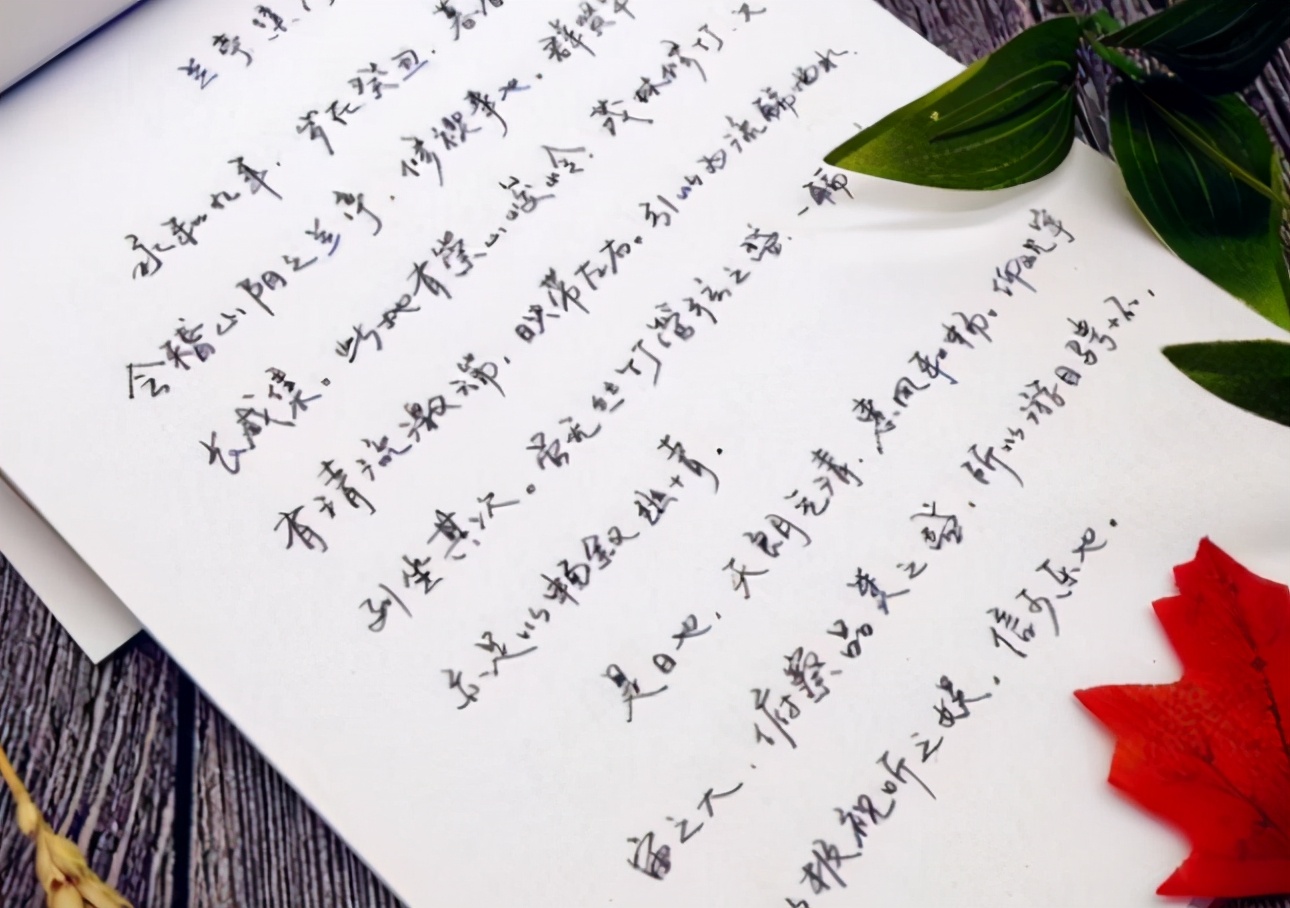 兰亭集
永和九年，岁在癸丑，暮春
会稽山阴之兰亭，修禊事也。群贤毕
长咸集。此地有崇山峻岭，茂林修竹，又
有清流激湍，映带左右。引以为流觞曲水，
列坐其次。虽无丝竹管弦之盛，一觞
亦足以畅叙幽情。
是日也，天朗气清，惠风和畅。仰观宇
宙之大，俯察品类之盛，所以游目骋怀，
极视听之娱，信可乐也。